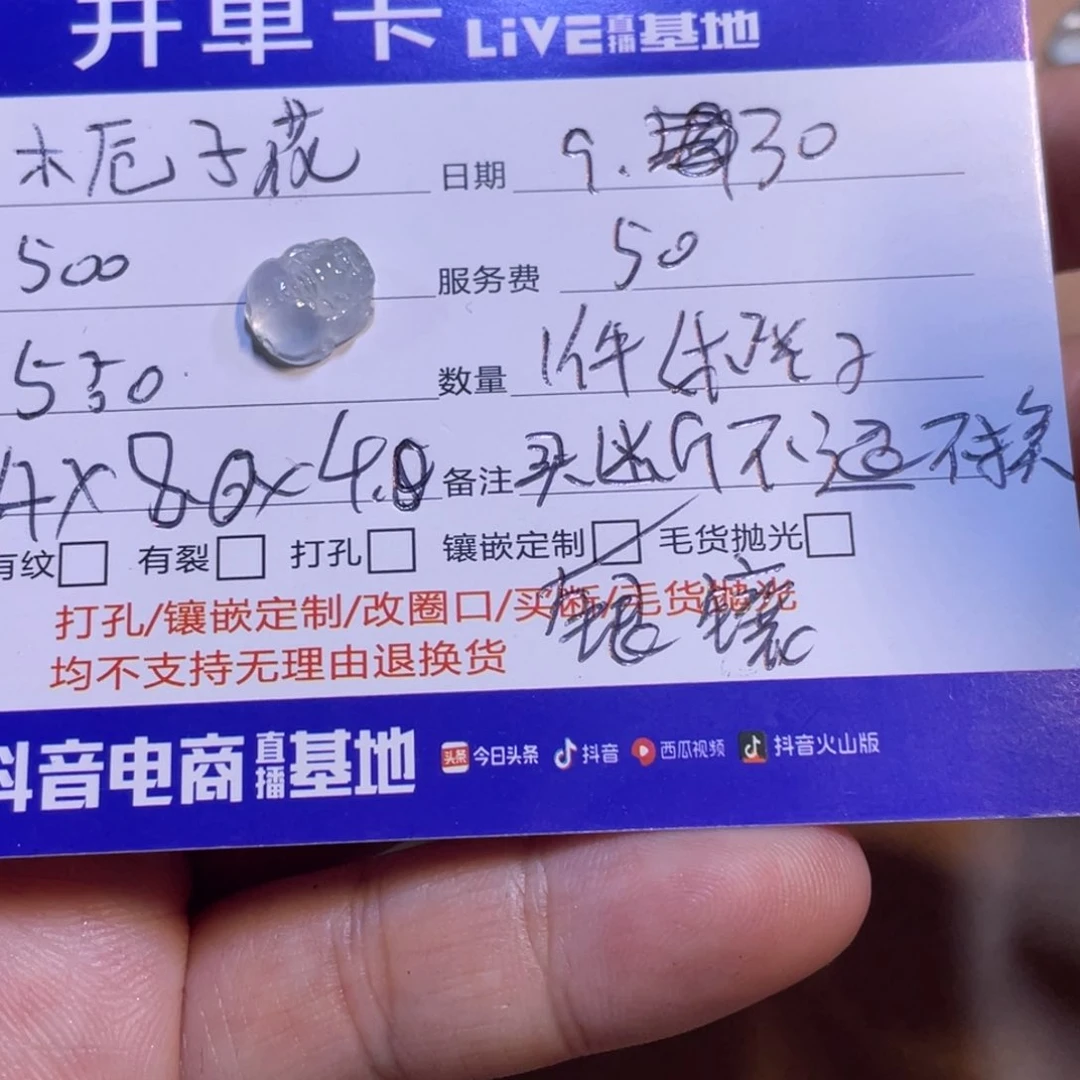 开单卡 LiVE直播基地
木栀子花 日期 9. 30
500 服务费 50
550 数量 1件
4×80×4.8 备注 买断 不退不换
有纹 有裂 打孔 镶嵌定制 毛货抛光
打孔/镶嵌定制/改圈口/买断/毛货抛光
银镶
均不支持无理由退换货
抖音电商直播基地 头条 今日头条 抖音 西瓜视频 抖音火山版